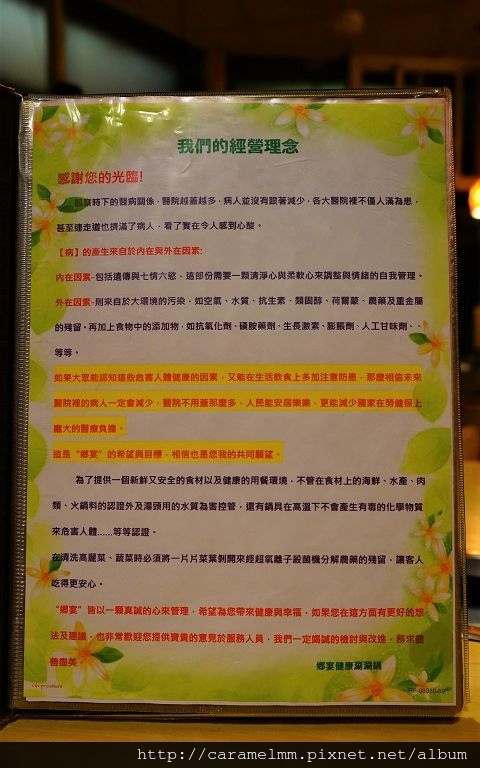 我們的經營理念
感謝您的光臨!
觀察時下的醫病關係，醫院越蓋越多，病人並沒有跟著減少，各大醫院裡不僅人滿為患，
甚至連走道也擠滿了病人，看了實在令人感到心酸。
【病】的產生來自於內在與外在因素:
內在因素-包括遺傳與七情六慾，這部份需要一顆清淨心與柔軟心來調整與情緒的自我管理。
外在因素-則來自於大環境的污染，如空氣、水質、抗生素、類固醇、荷爾蒙、農藥及重金屬
的殘留。再加上食物中的添加物，如抗氧化劑、磺胺藥劑、生長激素、膨脹劑、人工甘味劑、、
等等。
如果大眾能認知這些危害人體健康的因素，又能在生活飲食上多加注意防患，那麼相信未來
醫院裡的病人一定會減少，醫院不用蓋那麼多，人民能安居樂業，更能減少國家在勞健保上
龐大的醫療負擔。
這是“鄉宴”的希望與目標，相信也是您我的共同願望。
為了提供一個新鮮又安全的食材以及健康的用餐環境，不管在食材上的海鮮、水產、肉
類、火鍋料的認證外及湯頭用的水質為害控管，還有鍋具在高溫下不會產生有毒的化學物質
來危害人體......等等認證。
在清洗高麗菜、蔬菜時必須將一片片菜葉剝開來經超氧離子殺菌機分解農藥的殘留，讓客人
吃得更安心。
“鄉宴”皆以一顆真誠的心來管理，希望為您帶來健康與幸福，如果您在這方面有更好的想
法及建議，也非常歡迎您提供寶貴的意見於服務人員，我們一定竭誠的檢討與改進，務求盡
善盡美。
鄉宴健康涮涮鍋
http://caramelmm.pixnet.net/album